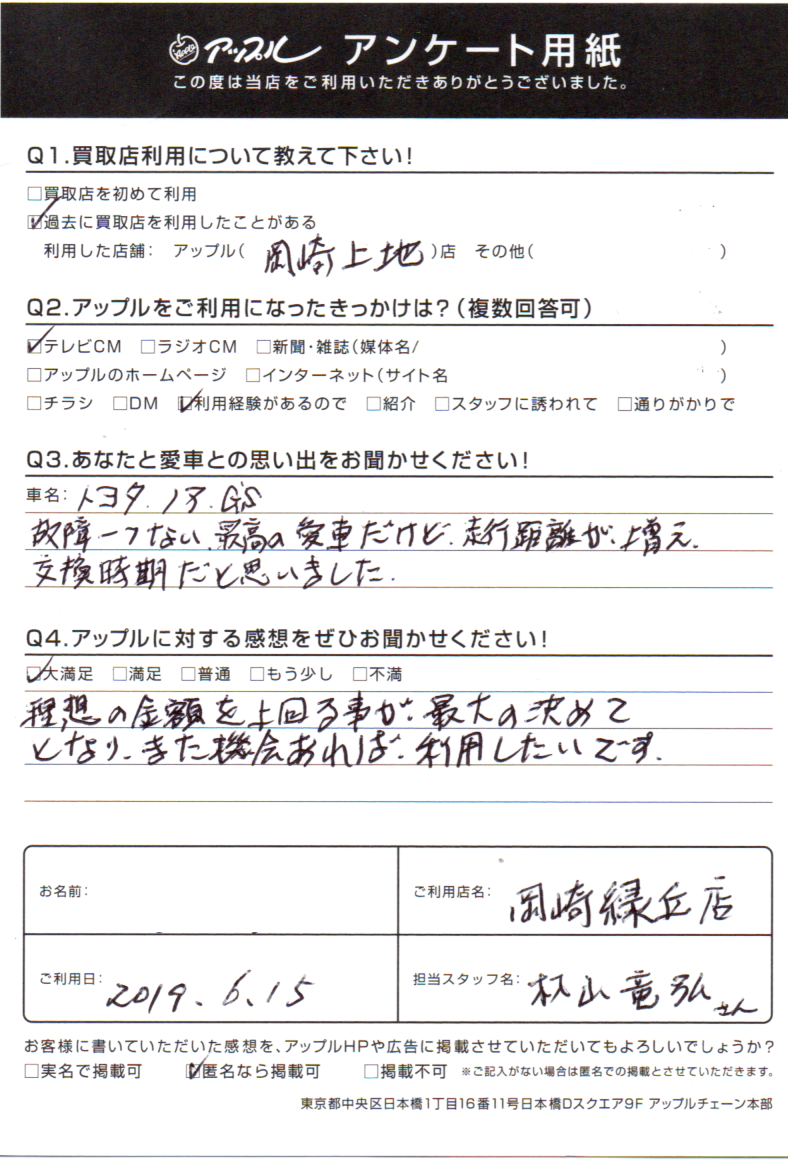 Apple アップル アンケート用紙
この度は当店をご利用いただきありがとうございました。
Q1.買取店利用について教えて下さい!
□買取店を初めて利用
☑過去に買取店を利用したことがある
利用した店舗: アップル( 岡崎上地 )店 その他( )
Q2.アップルをご利用になったきっかけは?(複数回答可)
☑テレビCM □ラジオCM □新聞・雑誌(媒体名/ )
□アップルのホームページ □インターネット(サイト名 )
□チラシ □DM ☑利用経験があるので □紹介 □スタッフに誘われて □通りがかりで
Q3.あなたと愛車との思い出をお聞かせください!
車名: トヨタ.ノア.G'S
故障一つない、最高の愛車だけど、走行距離が、増え、
交換時期だと思いました.
Q4.アップルに対する感想をぜひお聞かせください!
☑大満足 □満足 □普通 □もう少し □不満
理想の金額を上回る事が、最大の決めて
となり、また機会あれば、利用したいです.
お名前:
ご利用店名: 岡崎緑丘店
ご利用日: 2019.6.15
担当スタッフ名: 杉山竜弘さん
お客様に書いていただいた感想を、アップルHPや広告に掲載させていただいてもよろしいでしょうか?
□実名で掲載可 ☑匿名なら掲載可 □掲載不可 ※ご記入がない場合は匿名での掲載とさせていただきます。
東京都中央区日本橋1丁目16番11号日本橋Dスクエア9F アップルチェーン本部